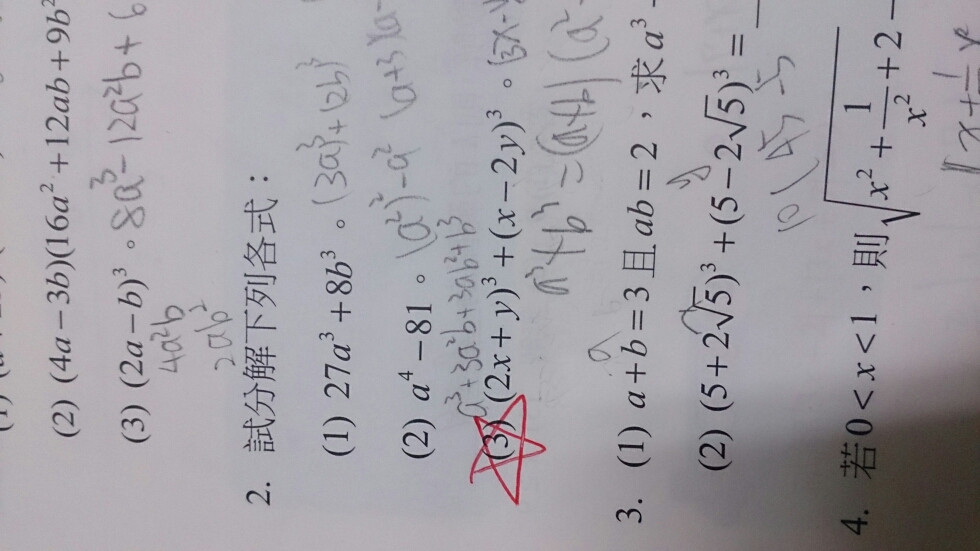 (2) (4a-3b)(16a²+12ab+9b²
(3) (2a-b)³。8a³-12a²b+6
4a²b
2ab²
2. 試分解下列各式：
(1) 27a³+8b³。(3a)³+(2b)³
(2) a⁴-81。
a³+3a²b+3ab²+b³
(3) (2x+y)³+(x-2y)³。(3x-y
a³+b³=(a+b)(a²-
3. (1) a+b=3且ab=2，求a³-
(2) (5+2√5)³+(5-2√5)³=
4. 若0<x<1，則√x²+1/x²+2-
x+1/x